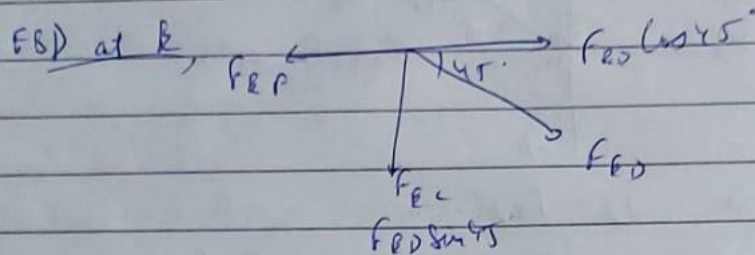 FBD at E,
F_EF
F_ED Cos 45°
45°
F_ED
F_EC
F_ED Sin 45